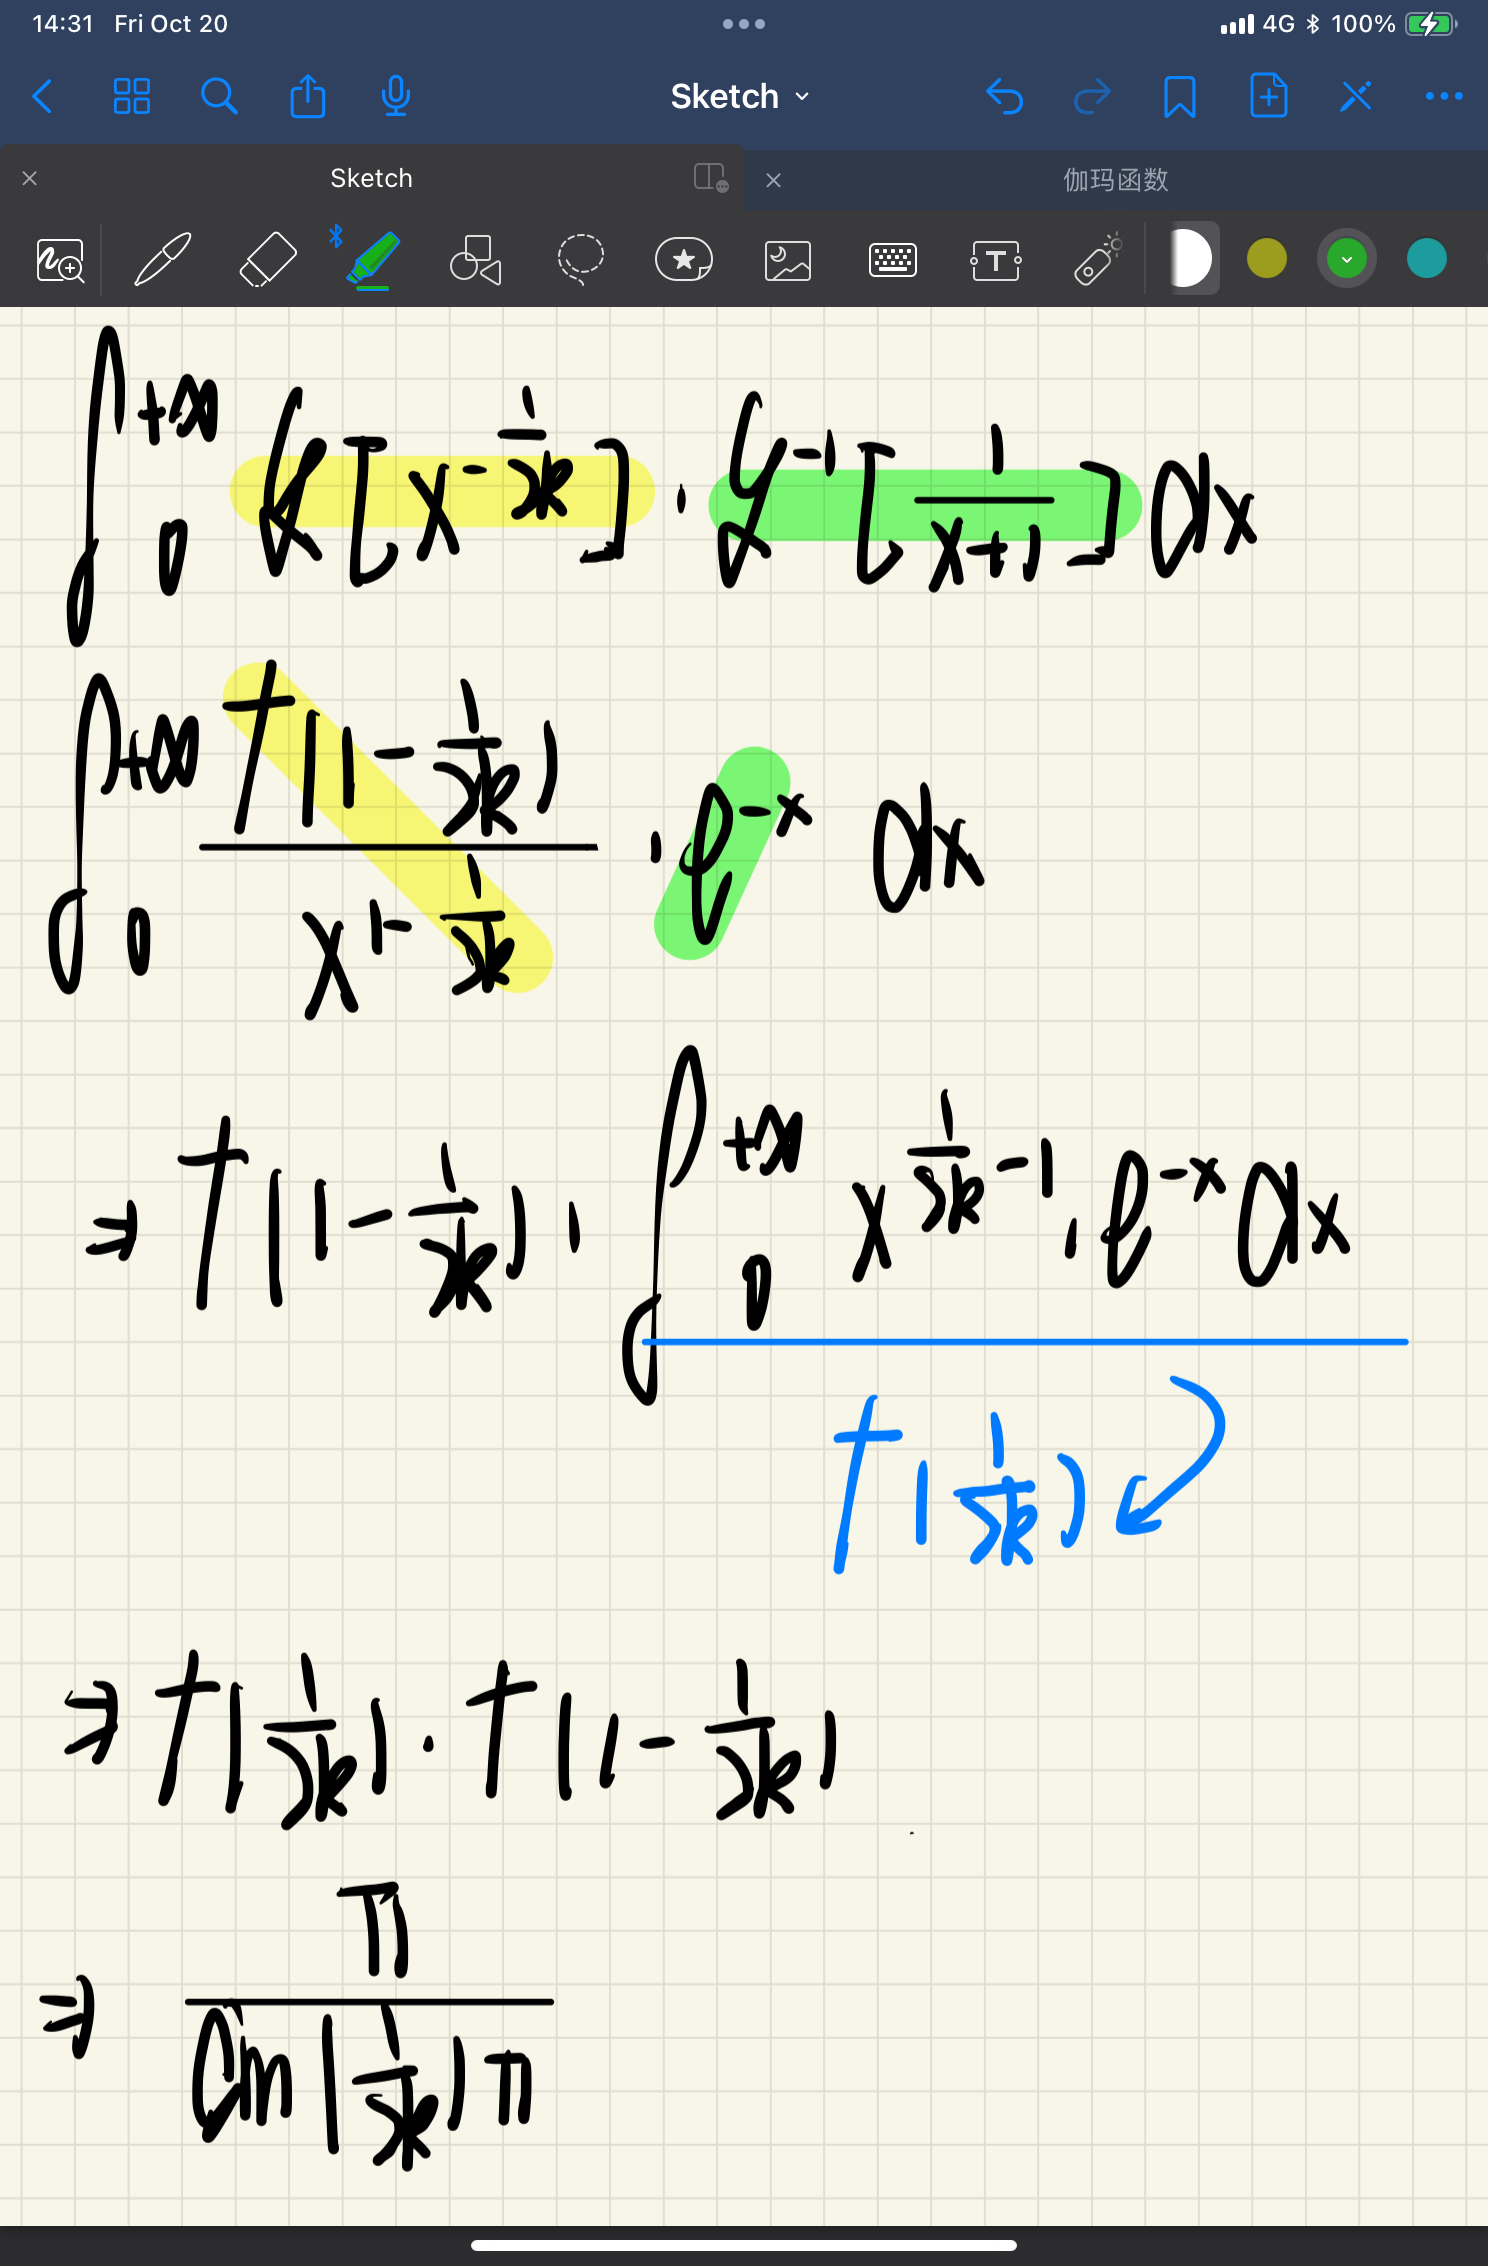 14:31 Fri Oct 20 4G 100%
Sketch
Sketch 伽玛函数
T
∫₀^{+∞} ℒ[x^{-1/2k}] · ℒ^{-1}[1/(x+1)] dx
∫₀^{+∞} Γ(1-1/2k)/x^{1-1/2k} · e^{-x} dx
⇒ Γ(1-1/2k) · ∫₀^{+∞} x^{1/2k-1} · e^{-x} dx
Γ(1/2k)
⇒ Γ(1/2k) · Γ(1-1/2k)
⇒ π/sin(1/2k)π